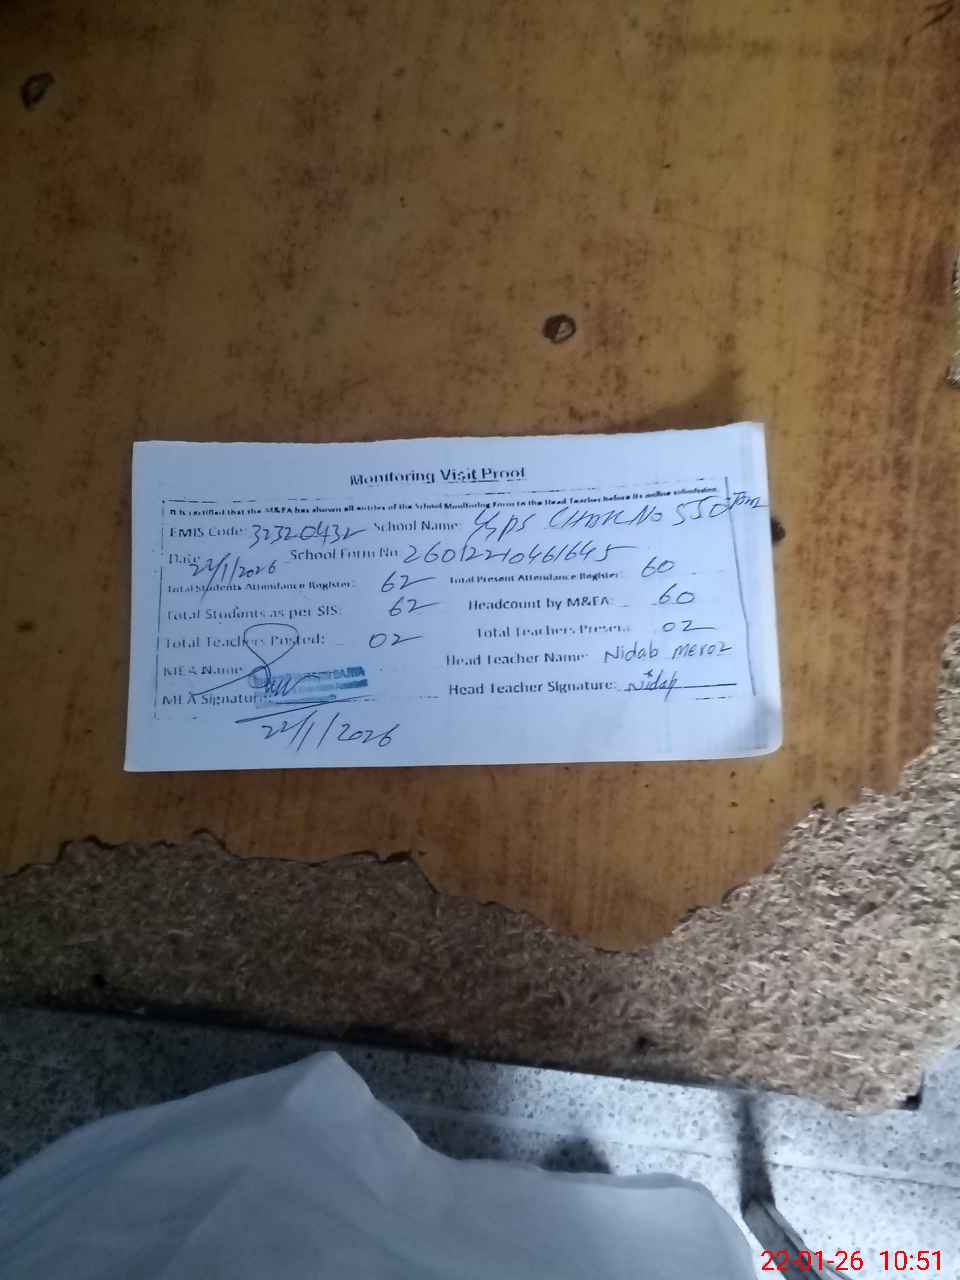 Monitoring Visit Proof
It is certified that the M&EA has shown all entries of the School Monitoring Form to the Head Teacher before its online submission.
EMIS Code: 32320432 School Name: GPS CHAK No 550
Date 22/1/2026 School Form No 26012210461645
Total Students Attendance Register: 62 Total Present Attendance Register: 60
Total Students as per SIS: 62 Headcount by M&EA: 60
Total Teachers Posted: 02 Total Teachers Present: 02
MEA Name Head Teacher Name: Nidab meroz
MEA Signature Head Teacher Signature: Nidab
22/1/2026
22-01-26 10:51